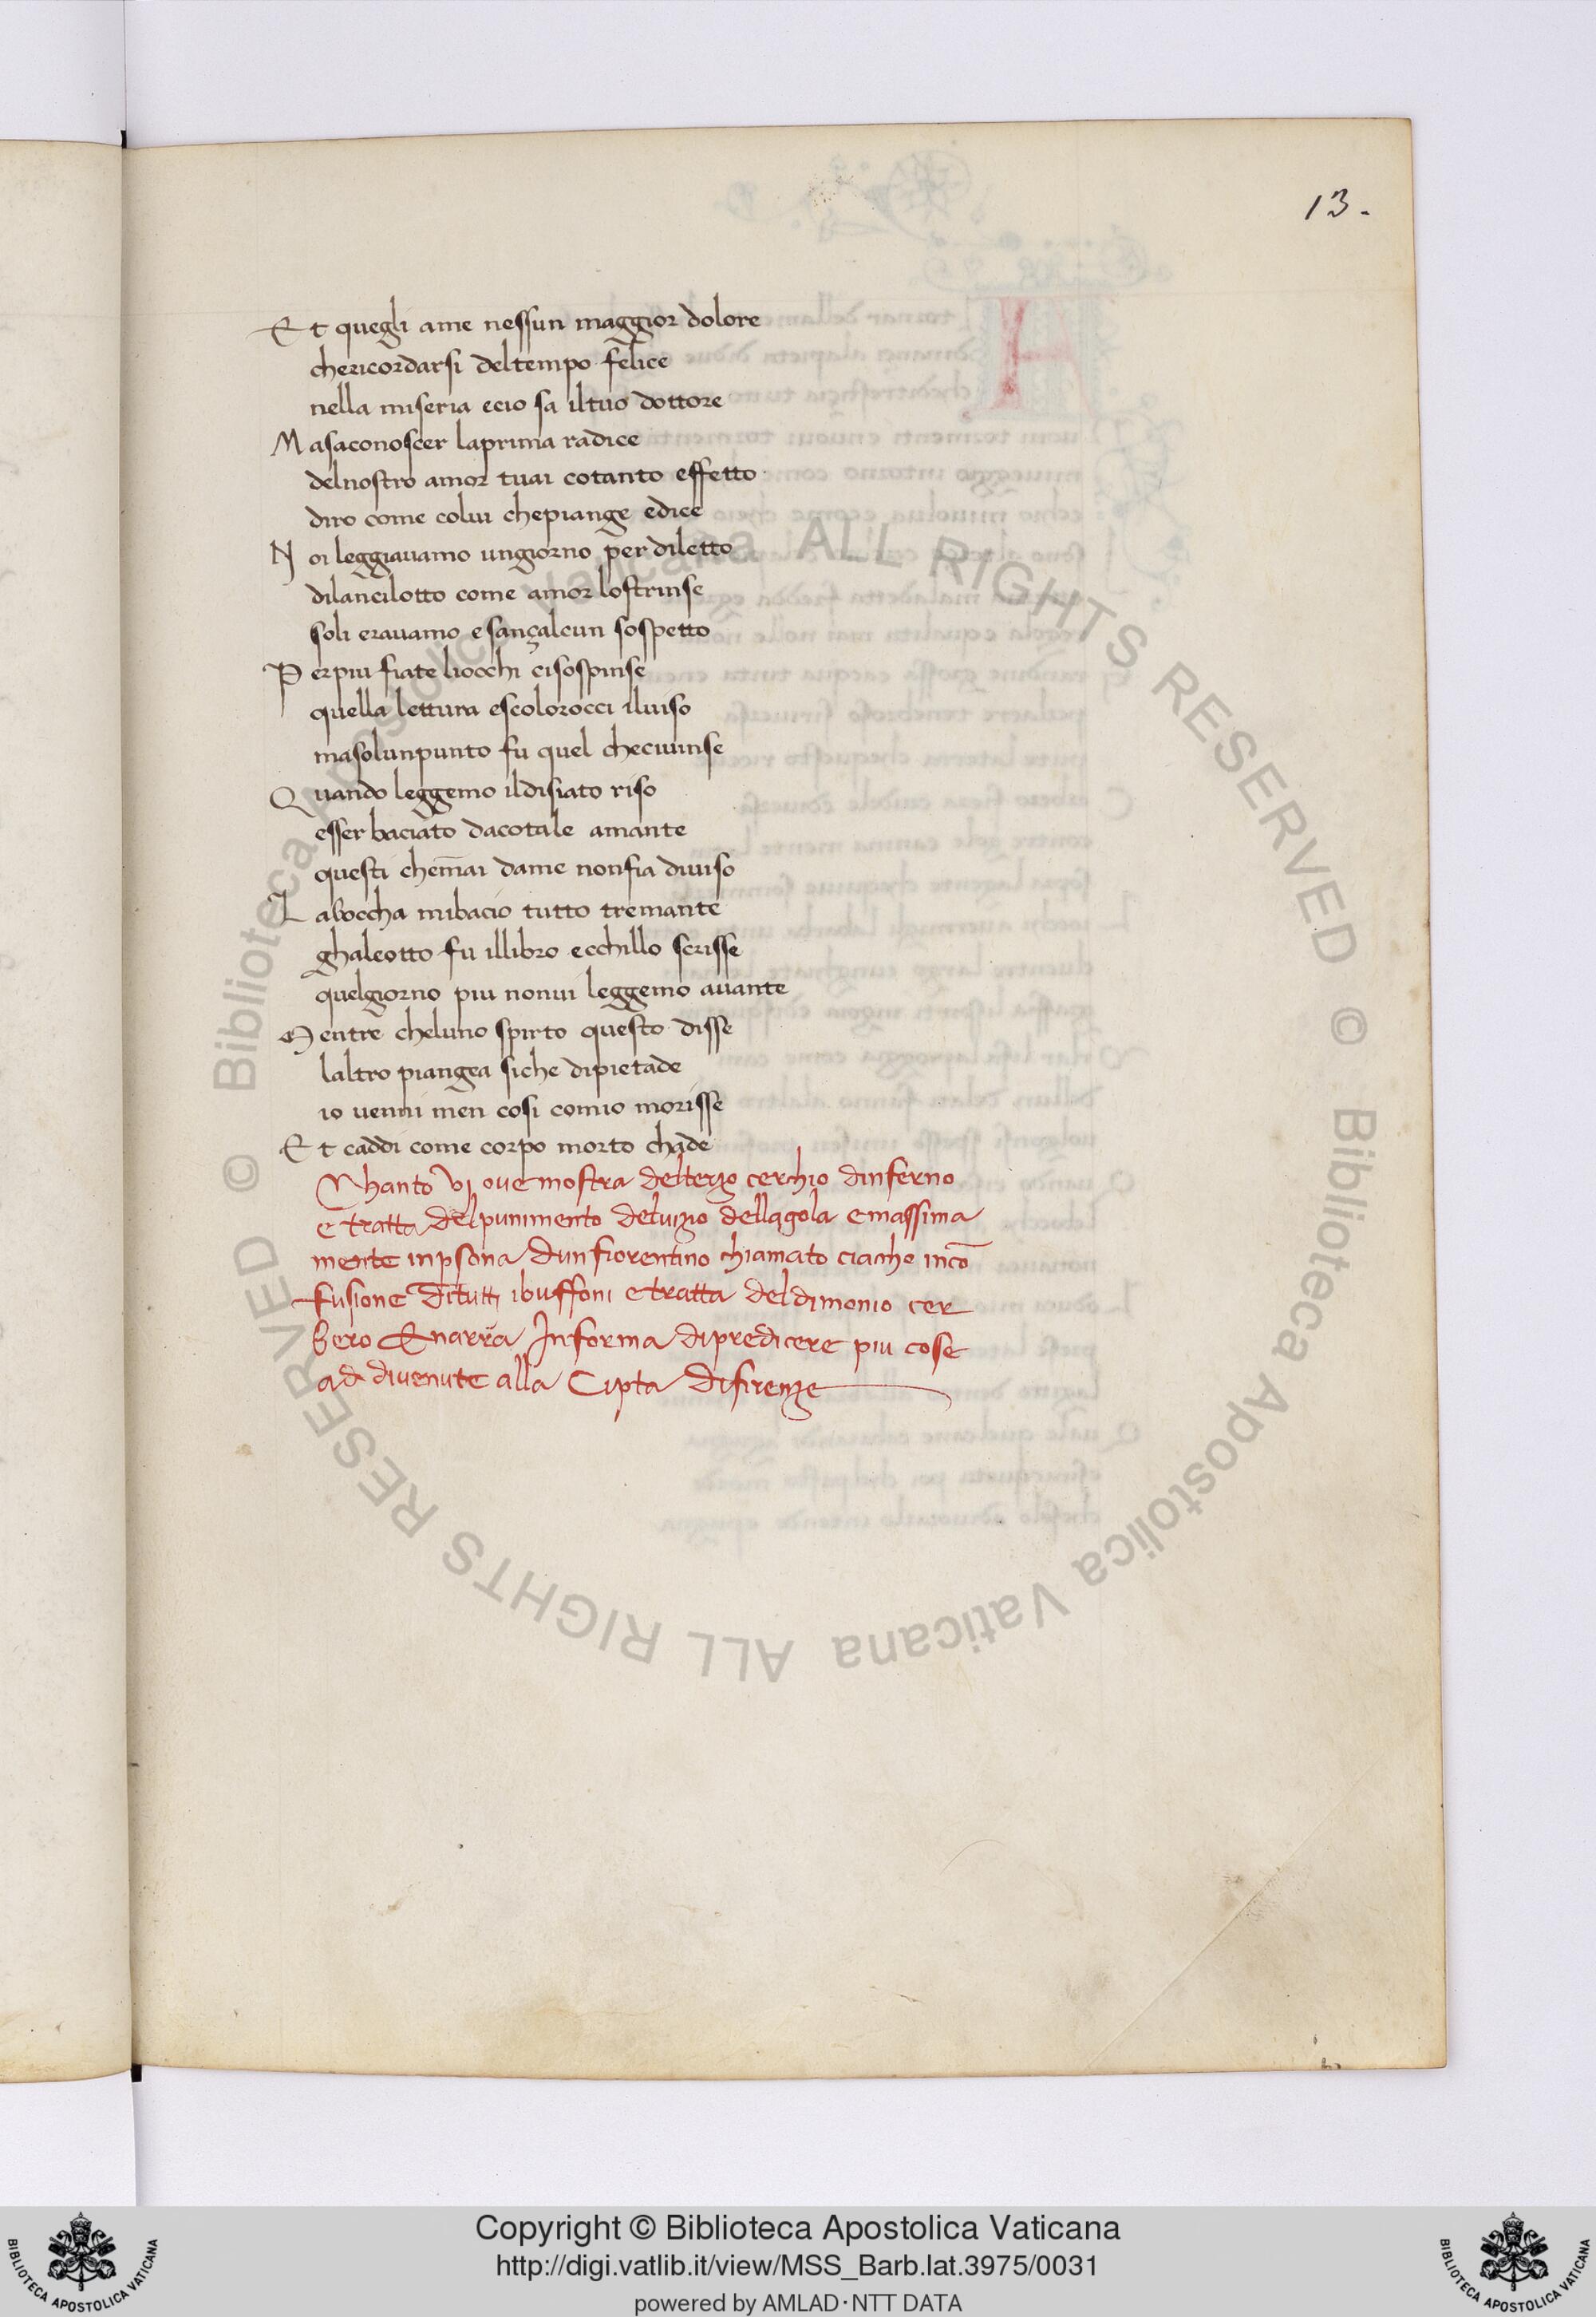 13.
Et quegli ame nessun maggior dolore
chericordarsi deltempo felice
nella miseria ecio sa iltuo dottore
Masaconoscer laprima radice
delnostro amor tuai cotanto effetto
diro come colui chepiange edice
Noi leggiauamo ungiorno per diletto
dilancilotto come amor lostrinse
soli erauamo esançalcun sospetto
Perpiu fiate liocchi cisospinse
quella lettura escolorocci iluiso
masolunpunto fu quel checiuinse
Quando leggemo ildisiato riso
esser baciato dacotale amante
questi chem̄ai dame nonfia diuiso
Laboccha mibacio tutto tremante
ghaleotto fu illibro ecchillo scrisse
quelgiorno piu nonui leggemo auante
Mentre cheluno spirto questo disse
laltro piangea siche dipietade
io uenni men cosi comio morisse
Et caddi come corpo morto chade
Chanto vj oue mostra delterzo cerchio dinferno
e tratta del punimento deluizio dellagola emassima
mente inpsona dun fiorentino chiamato ciacho incō
fusione ditutti ibuffoni etratta deldimonio cer
bero Enarra Informa dipredicere piu cose
ad diuenute alla Cipta difirenze
Copyright © Biblioteca Apostolica Vaticana
http://digi.vatlib.it/view/MSS_Barb.lat.3975/0031
powered by AMLAD·NTT DATA
BIBLIOTECA APOSTOLICA VATICANA
BIBLIOTECA APOSTOLICA VATICANA
© Biblioteca Apostolica Vaticana ALL RIGHTS RESERVED
© Biblioteca Apostolica Vaticana ALL RIGHTS RESERVED